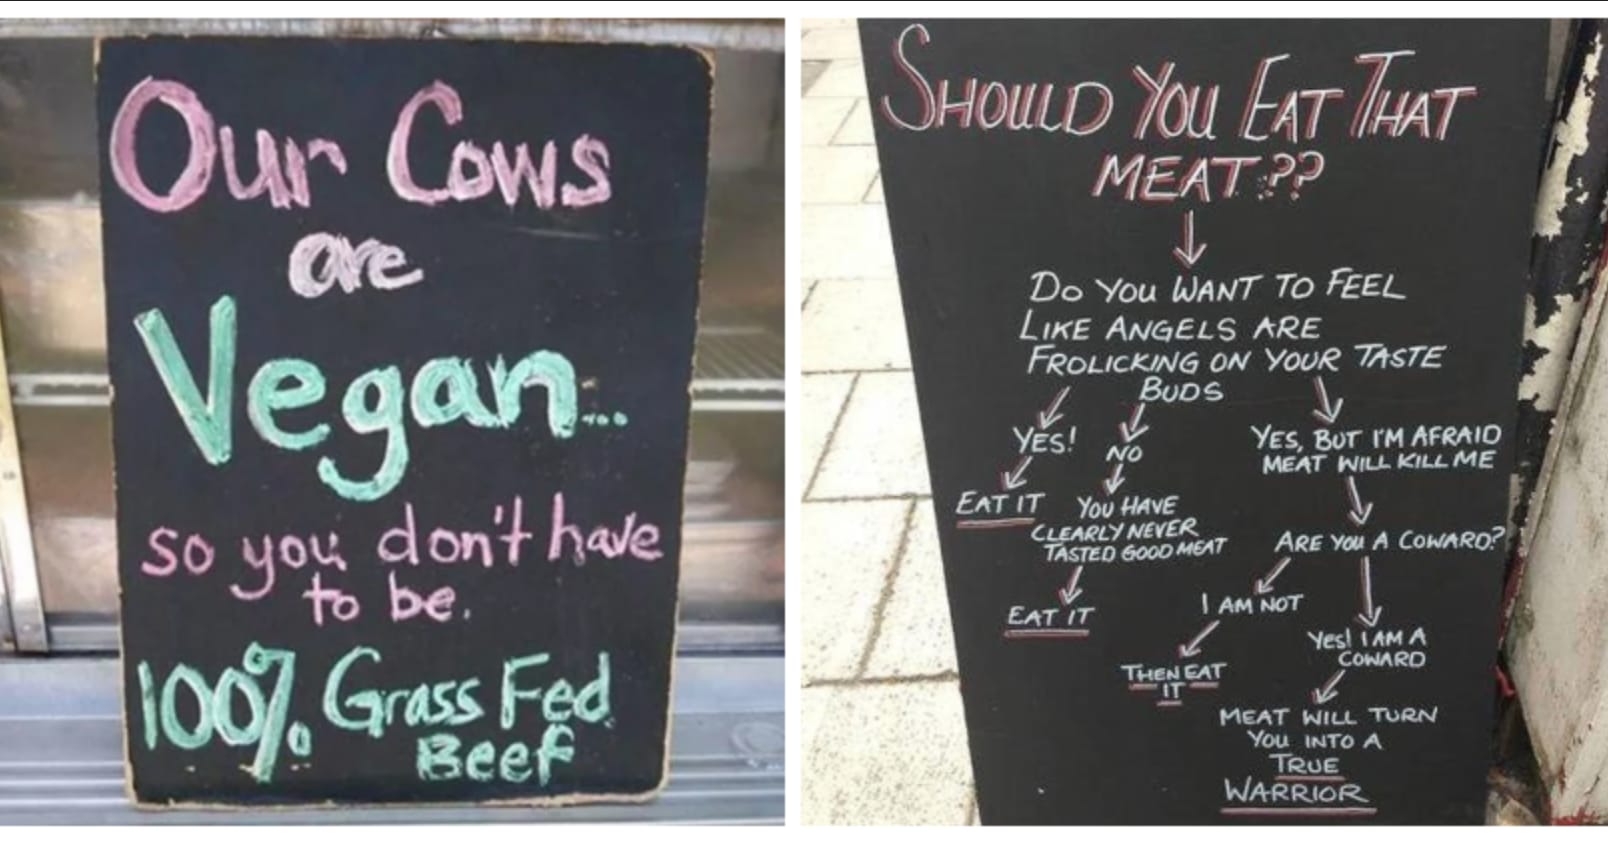 Our Cows
are
Vegan...
so you don't have
to be.
100% Grass Fed
Beef
SHOULD YOU EAT THAT
MEAT??
DO YOU WANT TO FEEL
LIKE ANGELS ARE
FROLICKING ON YOUR TASTE
BUDS
YES!
NO
YES, BUT I'M AFRAID
MEAT WILL KILL ME
EAT IT
YOU HAVE
CLEARLY NEVER
TASTED GOOD MEAT
ARE YOU A COWARD?
EAT IT
I AM NOT
Yes! I AM A
COWARD
THEN EAT
IT
MEAT WILL TURN
YOU INTO A
TRUE
WARRIOR